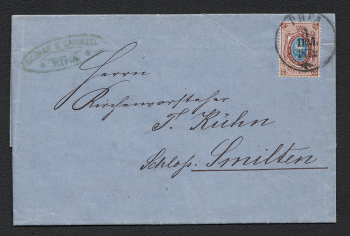 RIGA
Herrn
Kirchenvorsteher
T. Kühn
Schloss Smilten